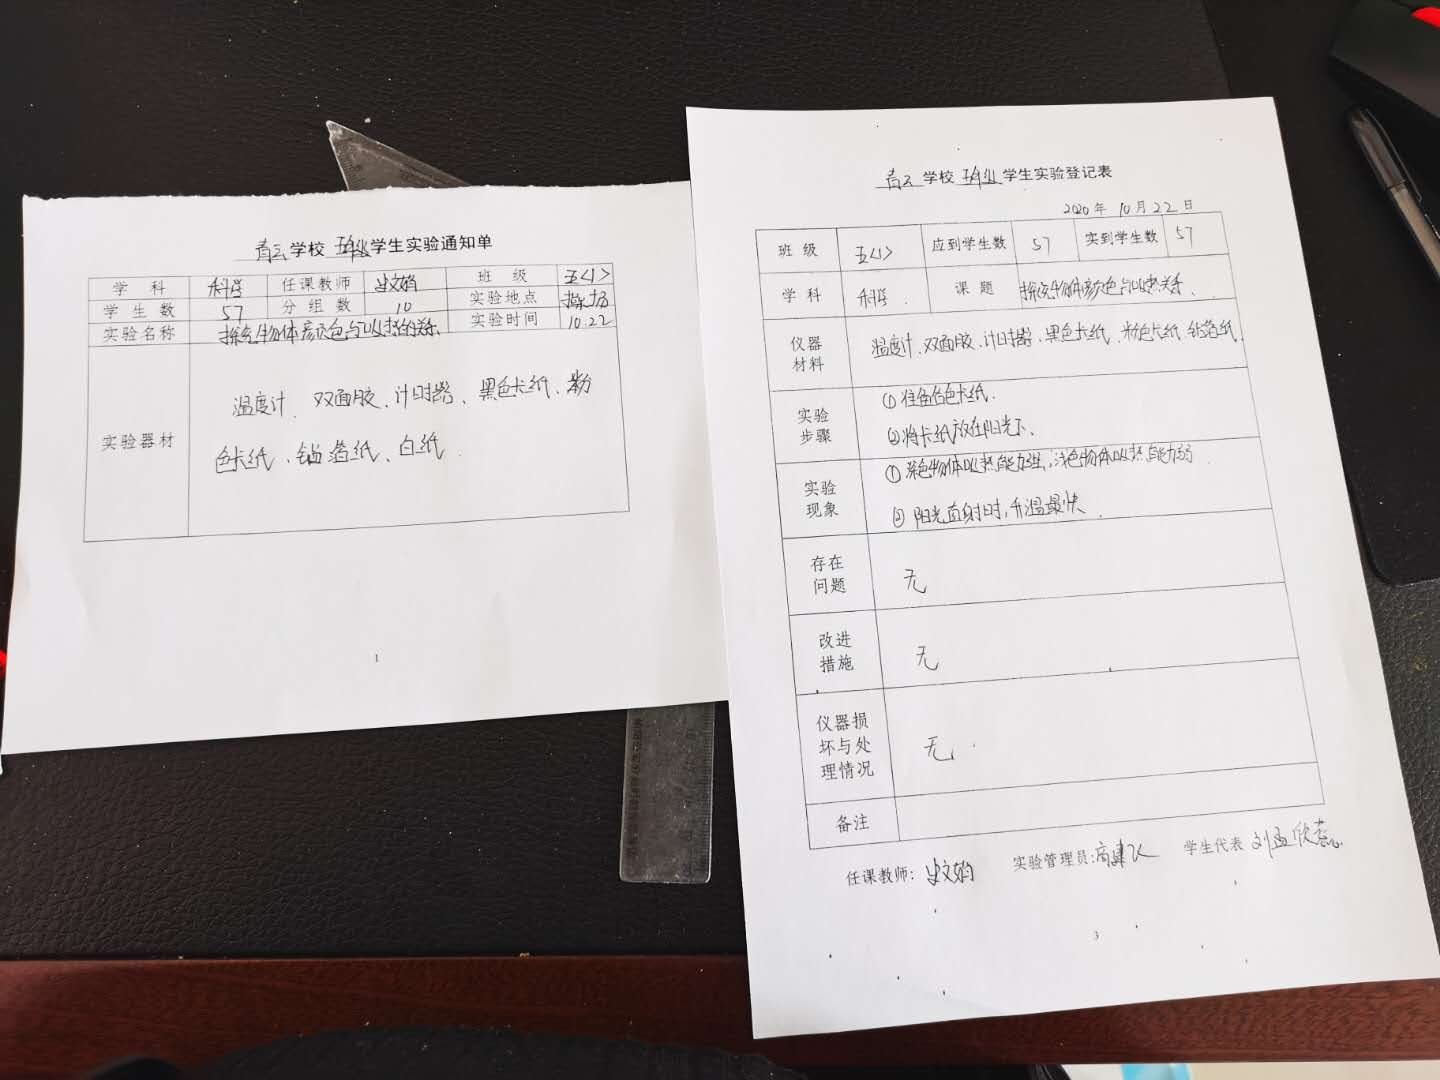 青云学校 五年级学生实验通知单
学 科 科学 任课教师 史文娟 班 级 五<1>
学 生 数 57 分 组 数 10 实验地点 操场
实验名称 探究物体颜色与吸热的关系 实验时间 10.22
实验器材
温度计、双面胶、计时器、黑色卡纸、粉
色卡纸、铝箔纸、白纸
1
青云学校 五年级学生实验登记表
2020年 10月22日
班 级 五<1> 应到学生数 57 实到学生数 57
学 科 科学. 课 题 探究物体颜色与吸热关系、
仪器
材料
温度计、双面胶、计时器、黑色卡纸、粉色卡纸、铝箔纸.
实验
步骤
①准备各色卡纸.
②将卡纸放在阳光下、
实验
现象
①深色物体吸热能力强,浅色物体吸热能力弱
②阳光直射时,升温最快.
存在
问题
无
改进
措施
无
仪器损
坏与处
理情况
无.
备注
任课教师: 史文娟 实验管理员: 高建飞 学生代表 刘孟欣蕊
3